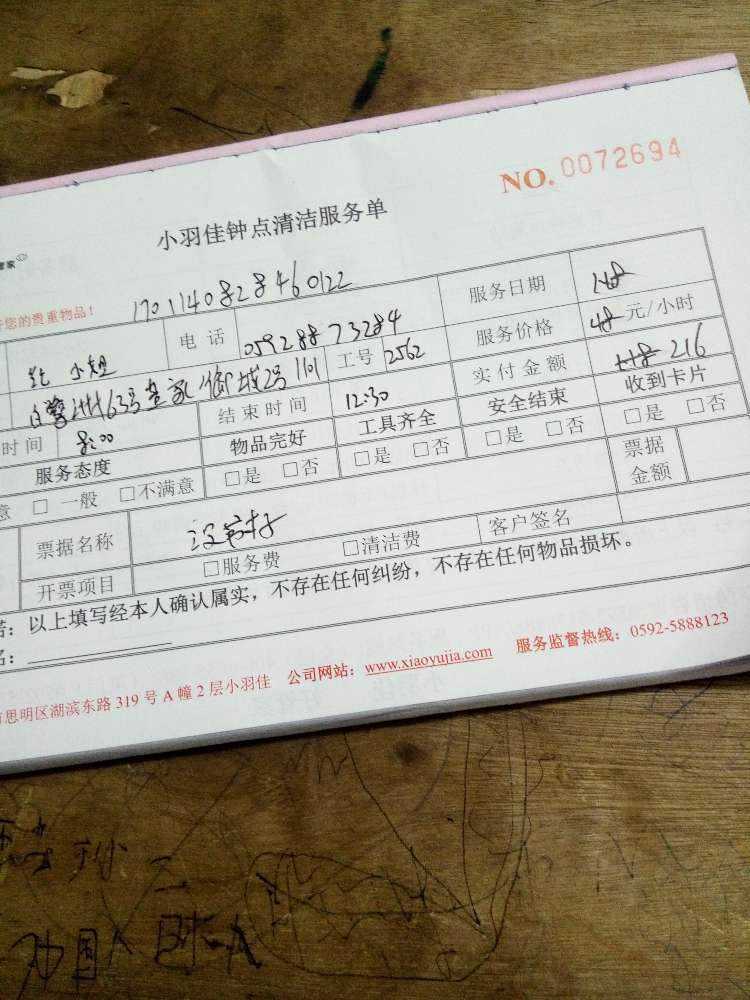 NO.0072694
小羽佳钟点清洁服务单
管您的贵重物品！ 1701140828460122
小姐 电话 05928873284 服务日期 1.18
白鹭洲63号 御城2号1101 工号 2562 服务价格 48元/小时
时间 8:00 结束时间 12:30 实付金额 216
服务态度 物品完好 工具齐全 安全结束 收到卡片
意 □ 一般 □不满意 □是 □否 □是 □否 □是 □否 □是 □否
票据名称 票据金额
开票项目 □服务费 □清洁费 客户签名
诺：以上填写经本人确认属实，不存在任何纠纷，不存在任何物品损坏。
名：
市思明区湖滨东路 319 号 A 幢 2 层小羽佳 公司网站：www.xiaoyujia.com 服务监督热线：0592-5888123
三